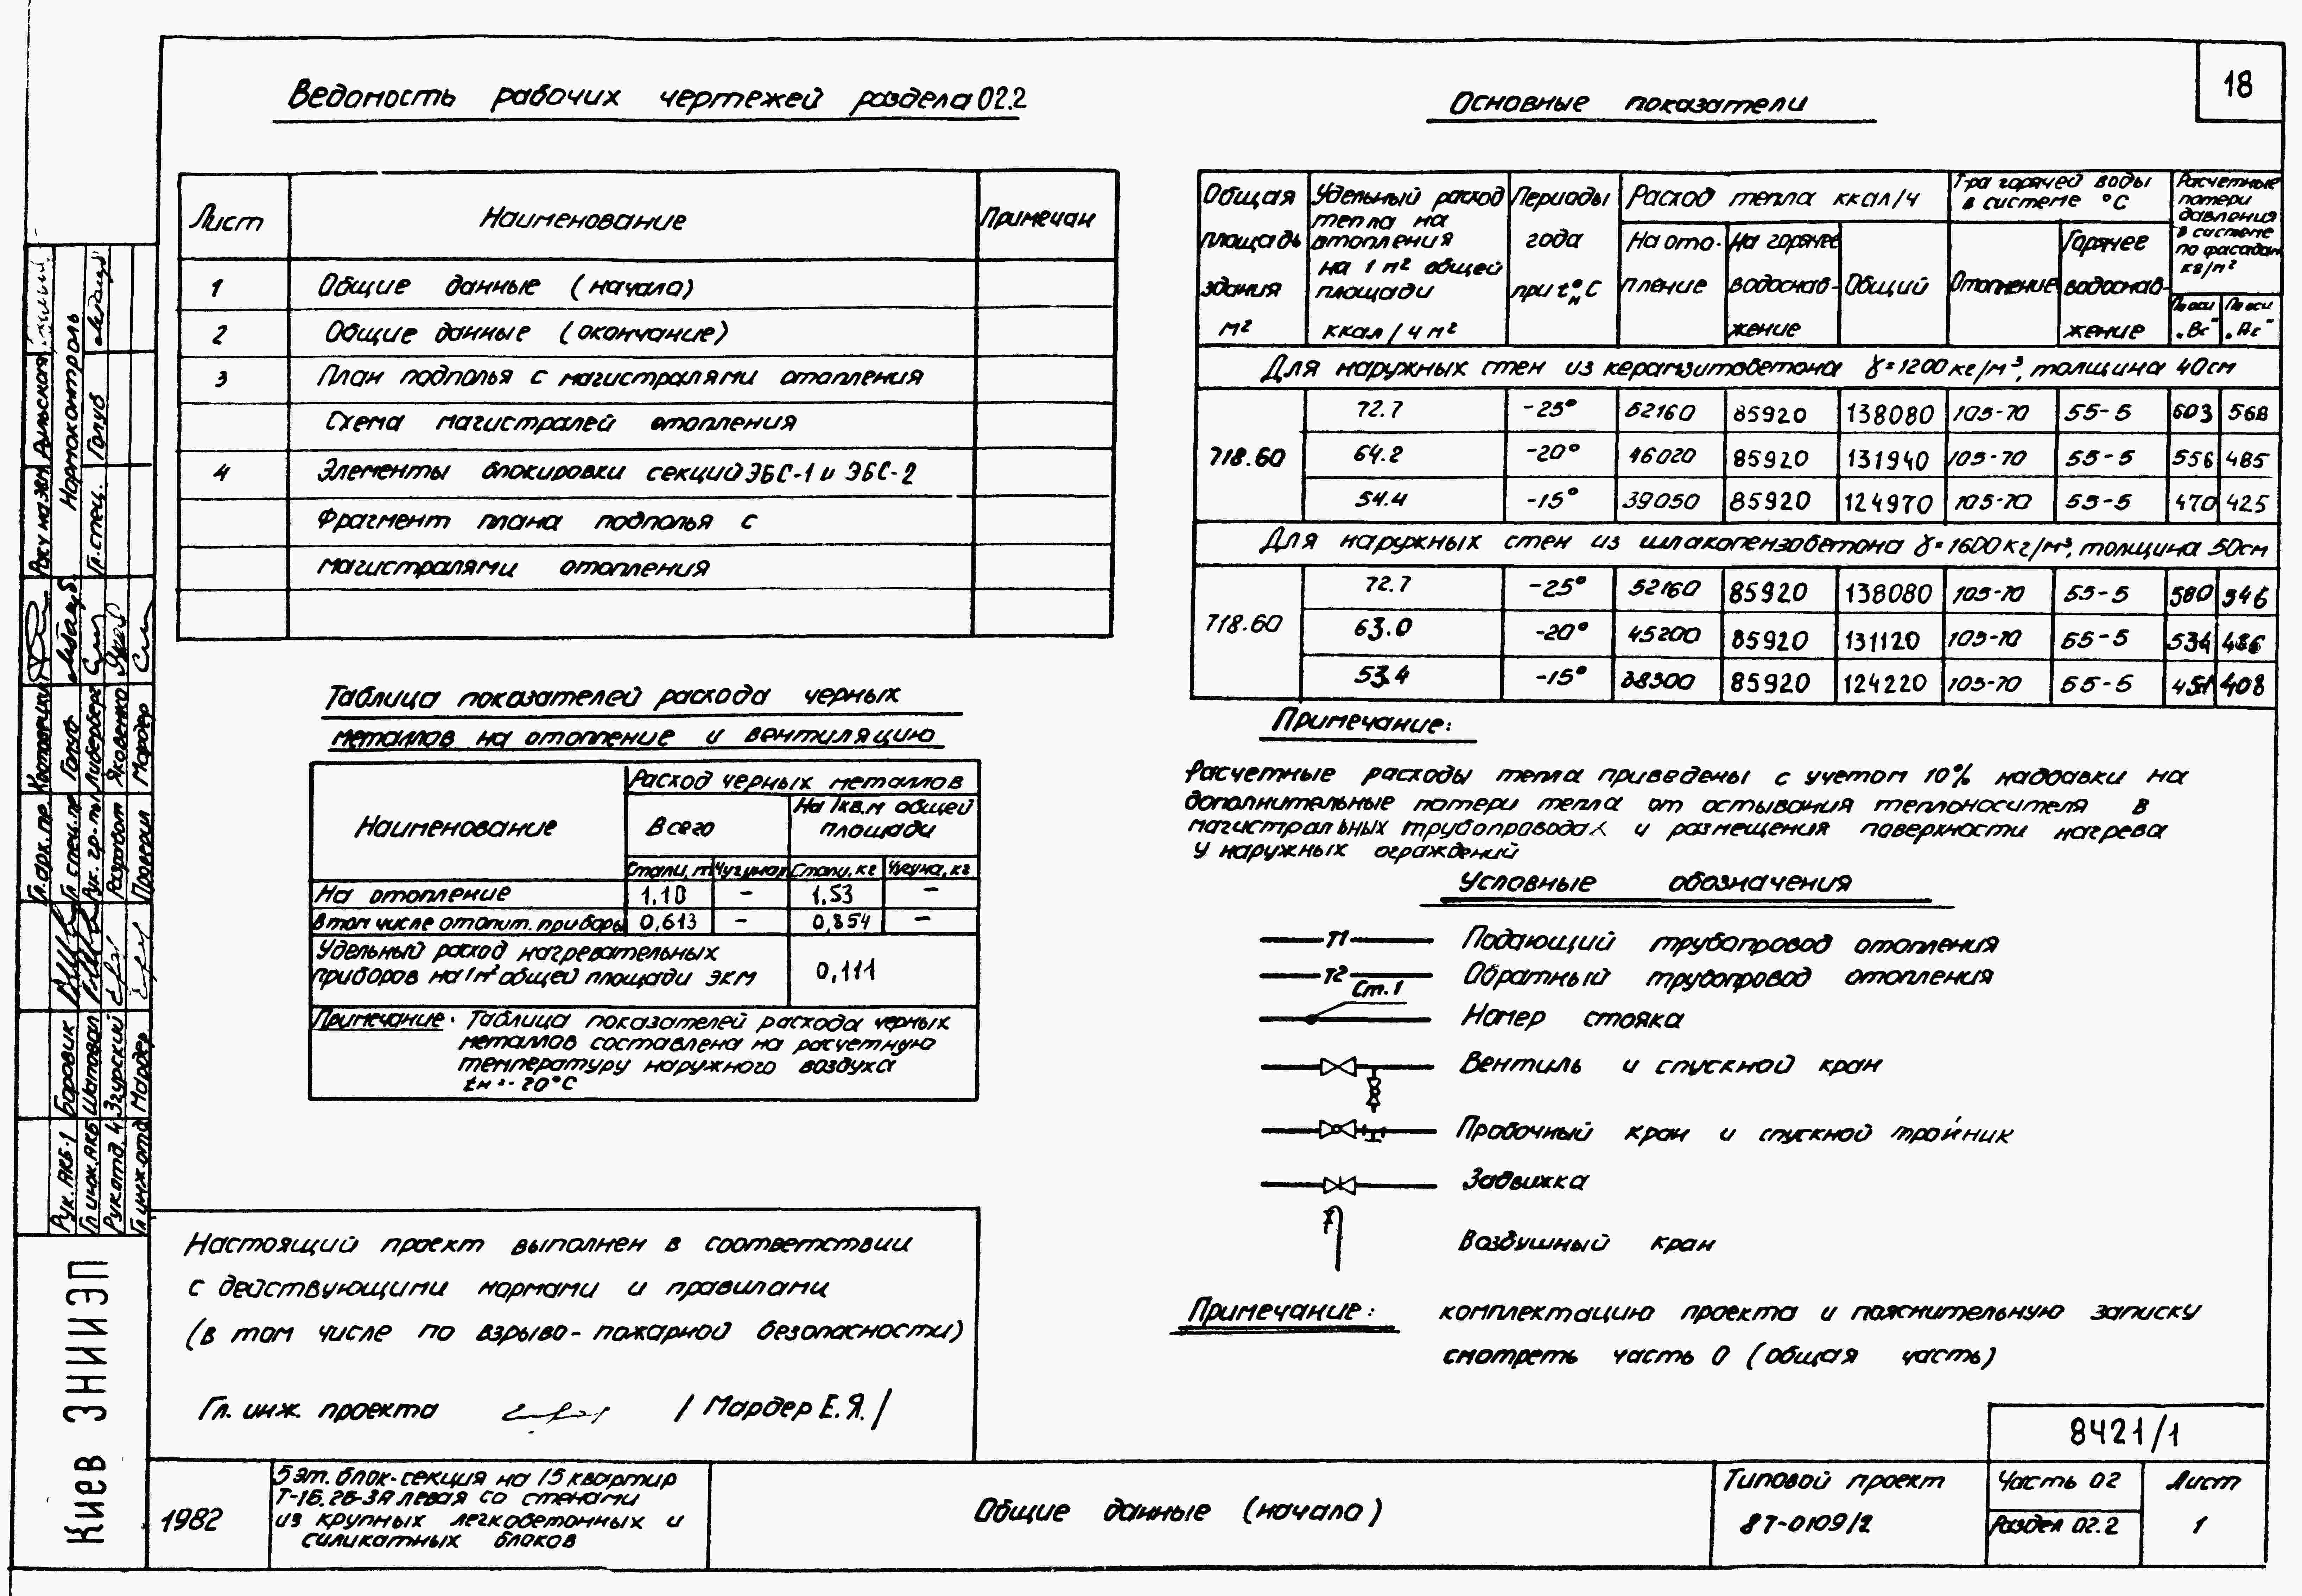 18
Ведомость рабочих чертежей раздела 02.2
Лист Наименование Примечан
1 Общие данные (начало)
2 Общие данные (окончание)
3 План подполья с магистралями отопления
Схема магистралей отопления
4 Элементы блокировки секций ЭБС-1 и ЭБС-2
Фрагмент плана подполья с
магистралями отопления
Таблица показателей расхода черных
металлов на отопление и вентиляцию
Наименование
Расход черных металлов
Всего
На 1кв.м общей
площади
Стали, т Чугуна, т Стали, кг Чугуна, кг
На отопление 1.10 – 1.53 –
В том числе отопит. приборы 0,613 – 0,854 –
Удельный расход нагревательных
приборов на 1м² общей площади экм 0,111
Примечание. Таблица показателей расхода черных
металлов составлена на расчетную
температуру наружного воздуха
tн = - 20°С
Настоящий проект выполнен в соответствии
с действующими нормами и правилами
(в том числе по взрыво-пожарной безопасности)
Гл. инж. проекта /Мардер Е.Я./
Основные показатели
Общая
площадь
здания
м²
Удельный расход
тепла на
отопления
на 1 м² общей
площади
ккал/ч м²
Периоды
года
при tн°С
Расход тепла ккал/ч
На ото-
пление
На горячее
водоснаб-
жение
Общий
Т-ра горячей воды
в системе °С
Отопление
Горячее
водоснаб-
жение
Расчетные
потери
давления
в системе
по фасадам
кг/м²
По оси
„Вс"
По оси
„Ас"
Для наружных стен из керамзитобетона γ=1200кг/м³, толщина 40см
718.60
72.7 -25° 52160 85920 138080 105-70 55-5 603 568
64.2 -20° 46020 85920 131940 105-70 55-5 556 485
54.4 -15° 39050 85920 124970 105-70 55-5 470 425
Для наружных стен из шлакопемзобетона γ=1600кг/м³, толщина 50см
718.60
72.7 -25° 52160 85920 138080 105-70 55-5 580 546
63.0 -20° 45200 85920 131120 105-70 55-5 534
53.4 -15° 38300 85920 124220 105-70 55-5 451 408
Примечание:
Расчетные расходы тепла приведены с учетом 10% надбавки на
дополнительные потери тепла от остывания теплоносителя в
магистральных трубопроводах и размещения поверхности нагрева
у наружных ограждений
Условные обозначения
Т1 Подающий трубопровод отопления
Т2 Обратный трубопровод отопления
Ст. 1 Номер стояка
Вентиль и спускной кран
Пробочный кран и спускной тройник
Задвижка
Воздушный кран
Примечание: комплектацию проекта и пояснительную записку
смотреть часть 0 (общая часть)
8421/1
1982
5 эт. блок-секция на 15 квартир
Т-1Б.2Б-3А левая со стенами
из крупных легкобетонных и
силикатных блоков
Общие данные (начало)
Типовой проект
87-0109/2
Часть 02
Раздел 02.2
Лист
1
Киев ЗНИИЭП
Рук. АКБ-1 Боровик
Гл инж. АКБ Шаповал
Рук отд. 4 Згурский
Гл инж. отд Мардер
Гл. арх. пр.
Гл спец. пр Голуб
Рук. гр-пы Либерберг
Разработ Яковенко
Проверил Мардер
Нормоконтроль
Гл. спец. Голуб